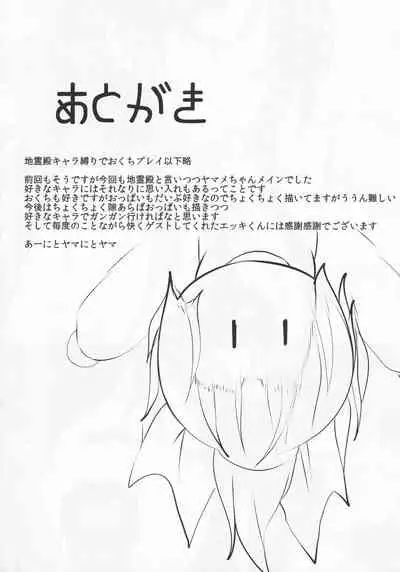 あとがき
地霊殿キャラ縛りでおくちプレイ以下略
前回もそうですが今回も地霊殿と言いつつヤマメちゃんメインでした
好きなキャラにはそれなりに思い入れもあるってことです
おくちも好きですがおっぱいもだいぶ好きなのでちょくちょく描いてますがううん難しい
今後はちょくちょく隙あらばおっぱいも描きつつ
好きなキャラでガンガン行ければなと思います
そして毎度のことながら快くゲストしてくれたエッキくんには感謝感謝でございます
あーにとヤマにとヤマ